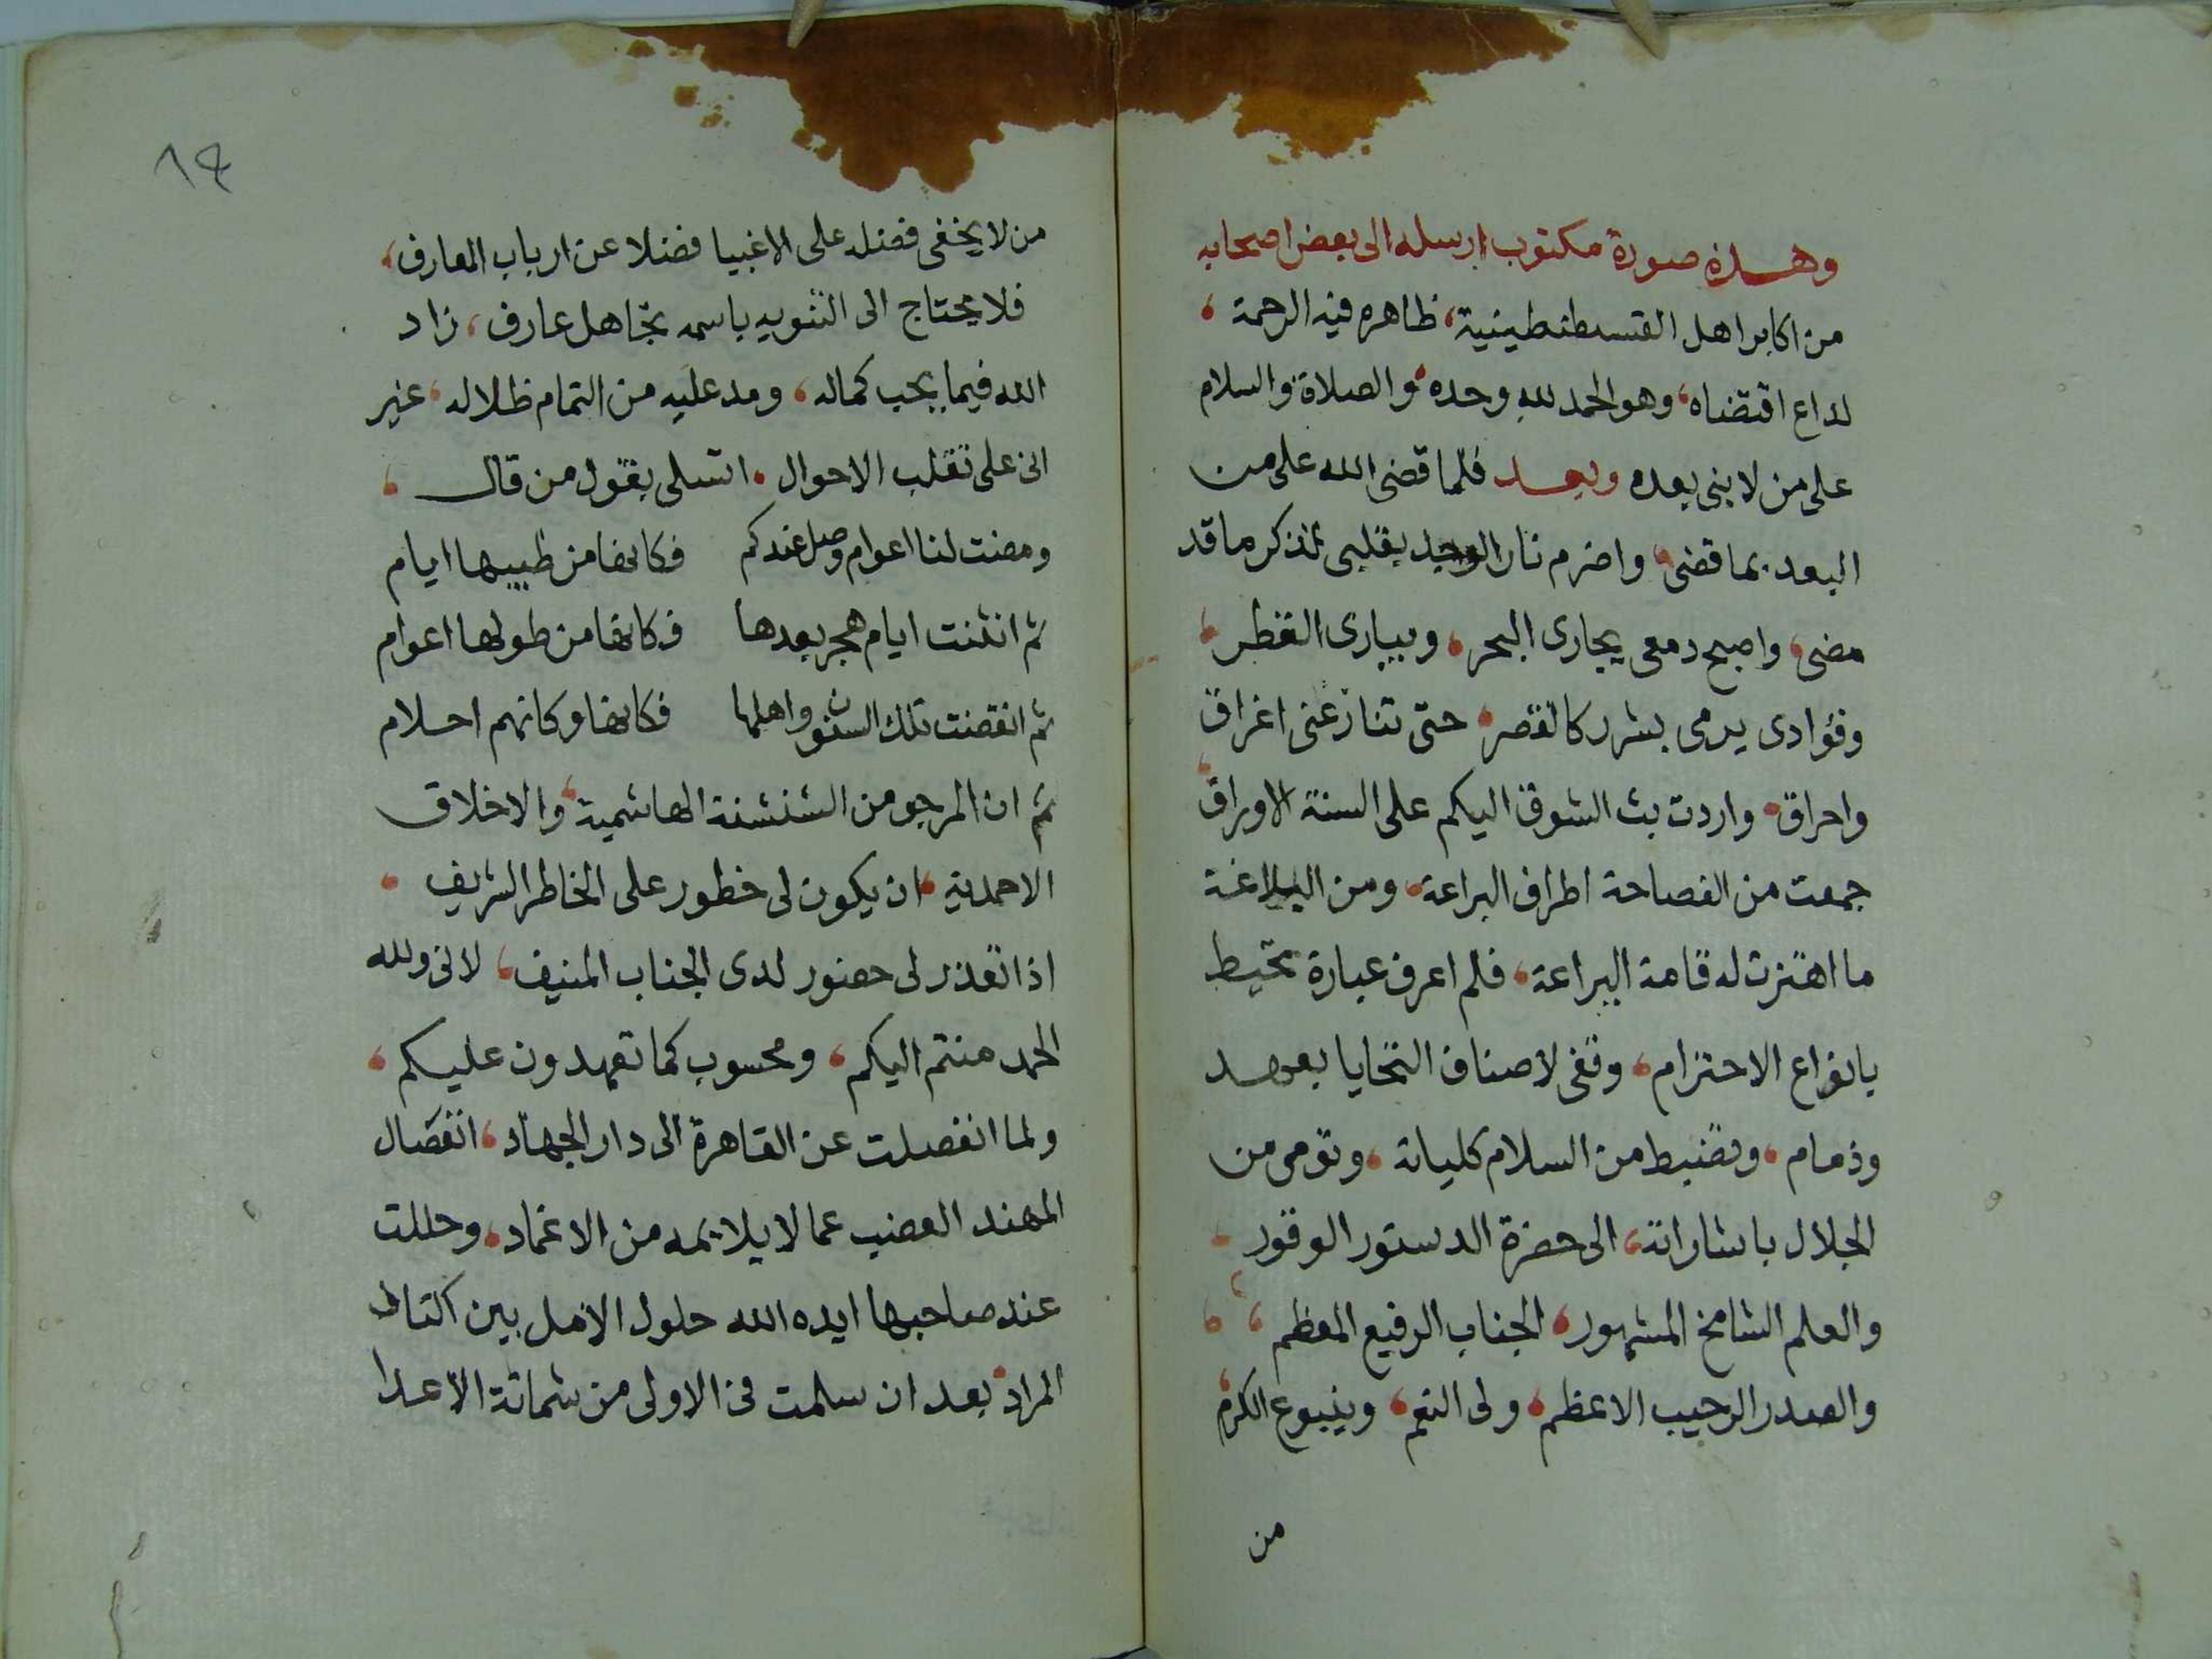 وهذه صورة مكتوب ارسله الى بعض اصحابه
من اكابر اهل القسطنطينية، ظاهره فيه الرحمة ،
لداع اقتضاه، وهو الحمد لله وحده، والصلاة والسلام
على من لا بنى بعده وبعد فلما قضى الله على من
البعد بما قضى، واضرم نار الوجد بقلبى لتذكر ما قد
مضى، واصبح دمعى يجارى البحر، ويبارى القطر،
وفؤادى يرمى بشرر كالقصر، حتى تنازعنى اغراق
واحراق، واردت بث الشوق اليكم على السنة الاوراق،
جمعت من الفصاحة اطراف البراعة، ومن البلاغة
ما اهتزت له قامة اليراعة، فلم اعرف عبارة تحيط
بانواع الاحتزام، وتفى لاصناف التحايا بعهد
وذمام، وتضبط من السلام كلياته، وتومى من
الجلال باشاراته، الى حضرة الدستور الوقور ،
والعلم الشامخ المشهور، الجناب الرفيع المعظم ،
والصدر الرحيب الاعظم، ولى النعم، وينبوع الكرم،
من
١٤
من لا يخفى فضله على الاغبيا فضلا عن ارباب المعارف،
فلا يحتاج الى التنويه باسمه تجاهل عارف، زاد
الله فيما يجب كماله، ومد عليه من التمام ظلاله، غير
انى على تقلب الاحوال، اتسلى بقول من قال ،
ومضت لنا اعوام وصل عندكم فكانها من طيبها ايام
ثم انثنت ايام هجر بعدها فكانها من طولها اعوام
ثم انقضت تلك السنون واهلها فكانها وكانهم احلام
ثم ان المرجو من الشنشنة الهاشمية، والاخلاق
الاحمدية، ان يكون لى خطور على الخاطر الشريف ،
اذا تعذر لى حضور لدى الجناب المنيف، لانى ولله
الحمد منتم اليكم، ومحسوب كما تعهدون عليكم،
ولما انفصلت عن القاهرة الى دار الجهاد، انفصال
المهند العضب عما لا يلايمه من الاغماد، وحللت
عند صاحبها ايده الله حلول الامل بين اكناف
المراد، بعد ان سلمت فى الاولى من شماتة الاعدا